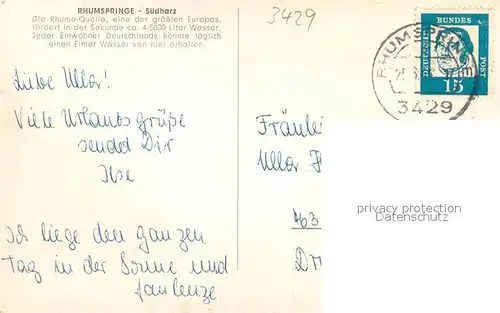 RHUMSPRINGE - Südharz
Die Rhume-Quelle, eine der größten Europas,
fördert in der Sekunde ca. 4-5000 Liter Wasser.
Jeder Einwohner Deutschlands könnte täglich
einen Eimer Wasser von hier erhalten.
3429
RHUMSPRIN
3429
DEUTSCHE
BUNDES
POST
15
Liebe Ulla!
Viele Urlaubsgrüße
sendet Dir
Ilse
Ich liege den ganzen
Tag in der Sonne und
faulenze
Fräulei
Ulla
463
privacy protection
Datenschutz